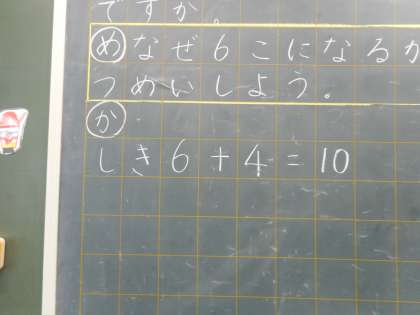 ですか。
めなぜ6こになるか
つめいしよう。
か
しき6+4=10